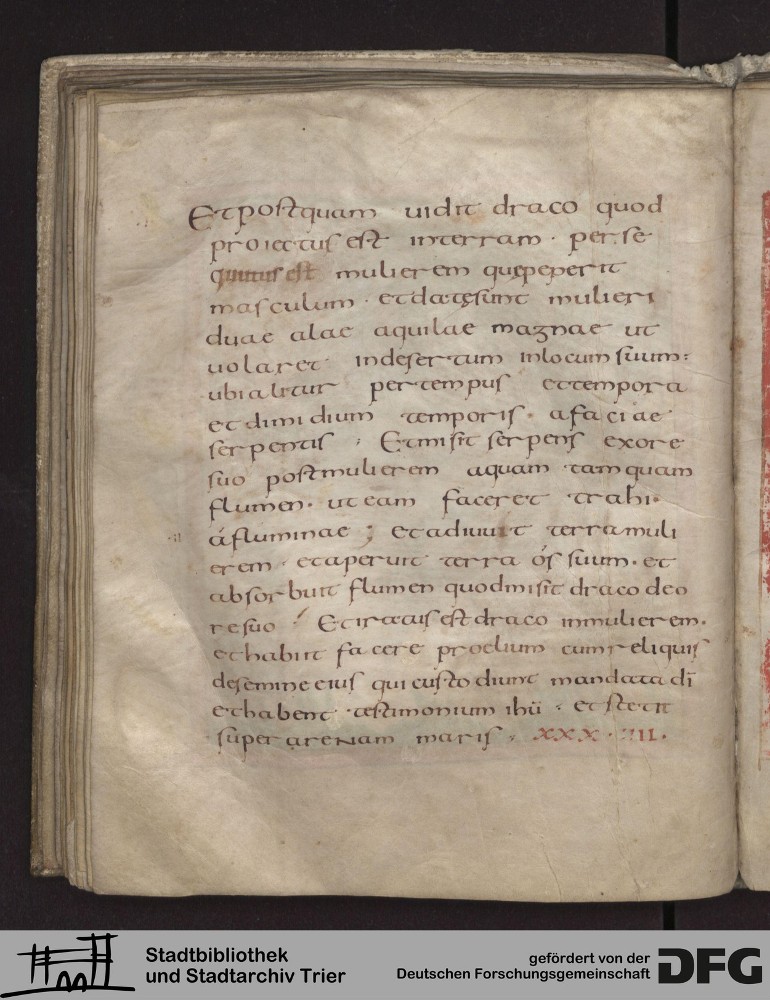 Etpostquam uidit draco quod
proiectus est interram · perse
quutus est mulierem quępeperit
masculum · etdatęsunt mulieri
duae alae aquilae magnae ut
uolaret indesertum inlocum suum:
ubi alitur pertempus ettempora
et dimidium temporis · afaciae
serpentis ; Etmisit serpens exore
suo postmulierem aquam tamquam
flumen · ut eam faceret trahi·
áfluminae ; et adiuuit terra muli
erem · et aperuit terra ós suum · et
absorbuit flumen quodmisit draco deo
re suo ; Et iratus est draco inmulierem·
et habiit facere proelium cum reliquis
desemine eius qui custodiunt mandata dī
et habent testimonium ihū · et stetit
super arenam maris · xxx · iiii ·
Stadtbibliothek
und Stadtarchiv Trier
gefördert von der
Deutschen Forschungsgemeinschaft
DFG